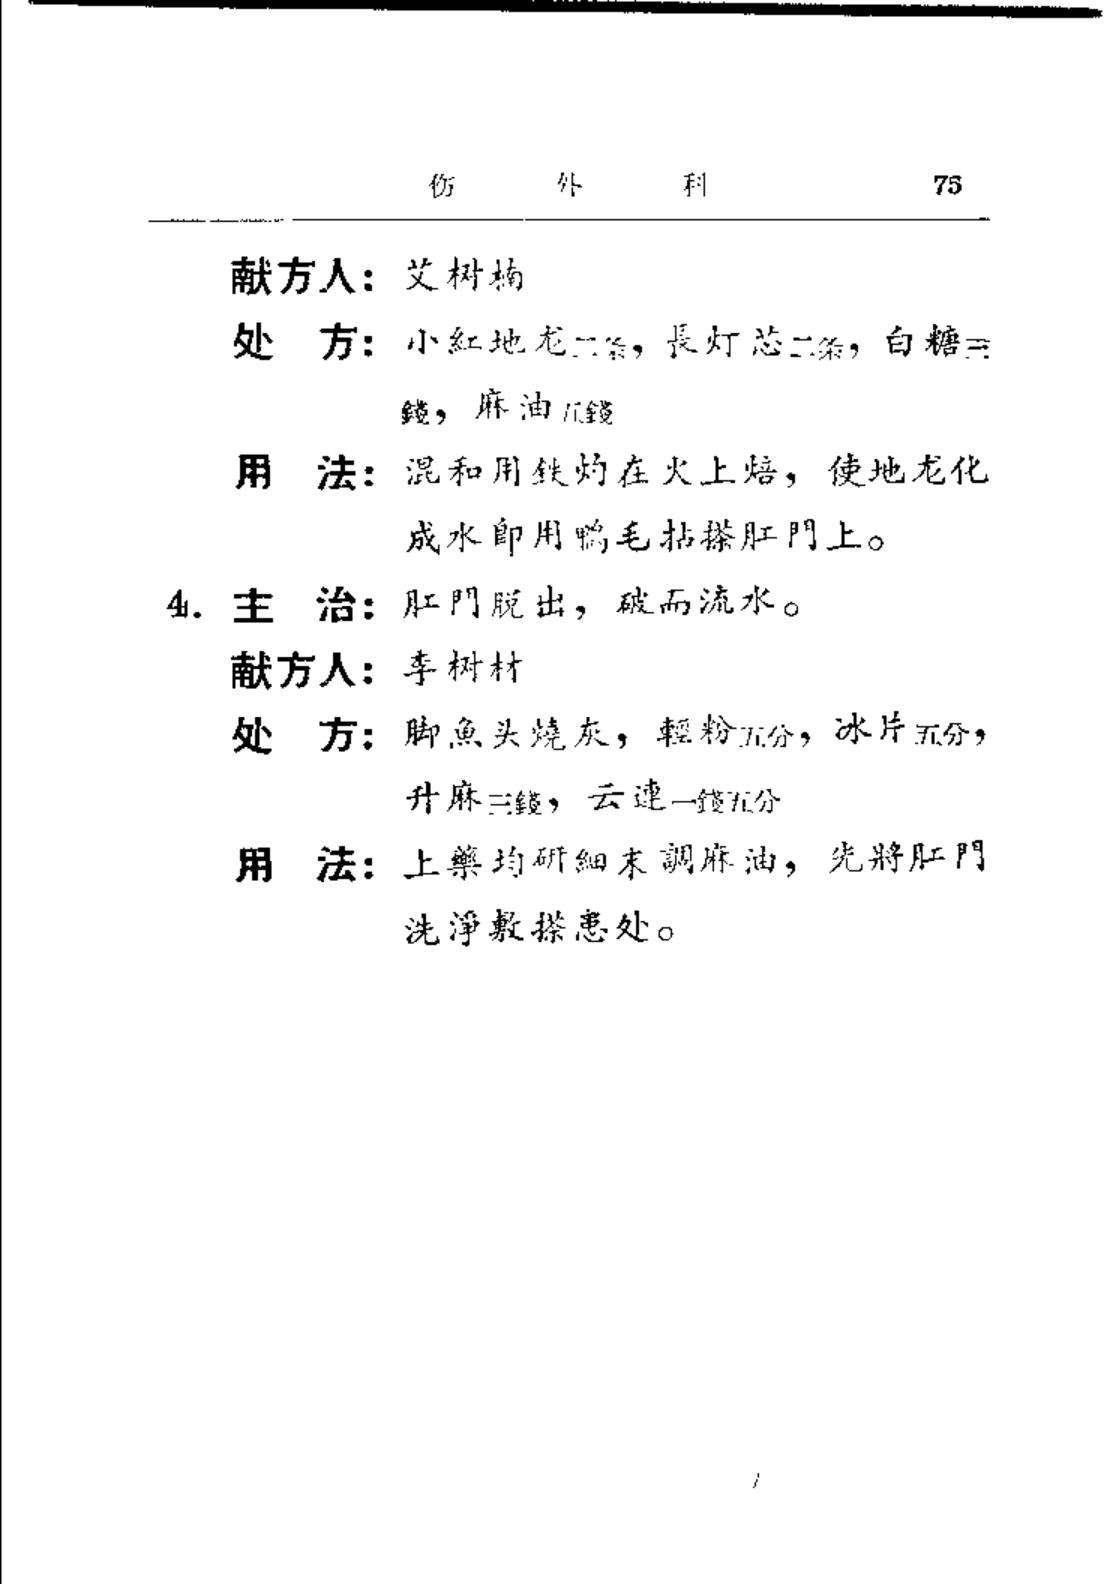 伤外科 75
献方人：艾树楠
处方：小紅地龙二条，長灯芯二条，白糖三
錢，麻油五錢
用法：混和用鉄灼在火上焙，使地龙化
成水即用鴨毛拈搽肛門上。
4. 主治：肛門脱出，破而流水。
献方人：李树材
处方：脚魚头燒灰，輕粉五分，冰片五分，
升麻三錢，云連一錢五分
用法：上藥均研細末調麻油，先將肛門
洗淨敷搽患处。